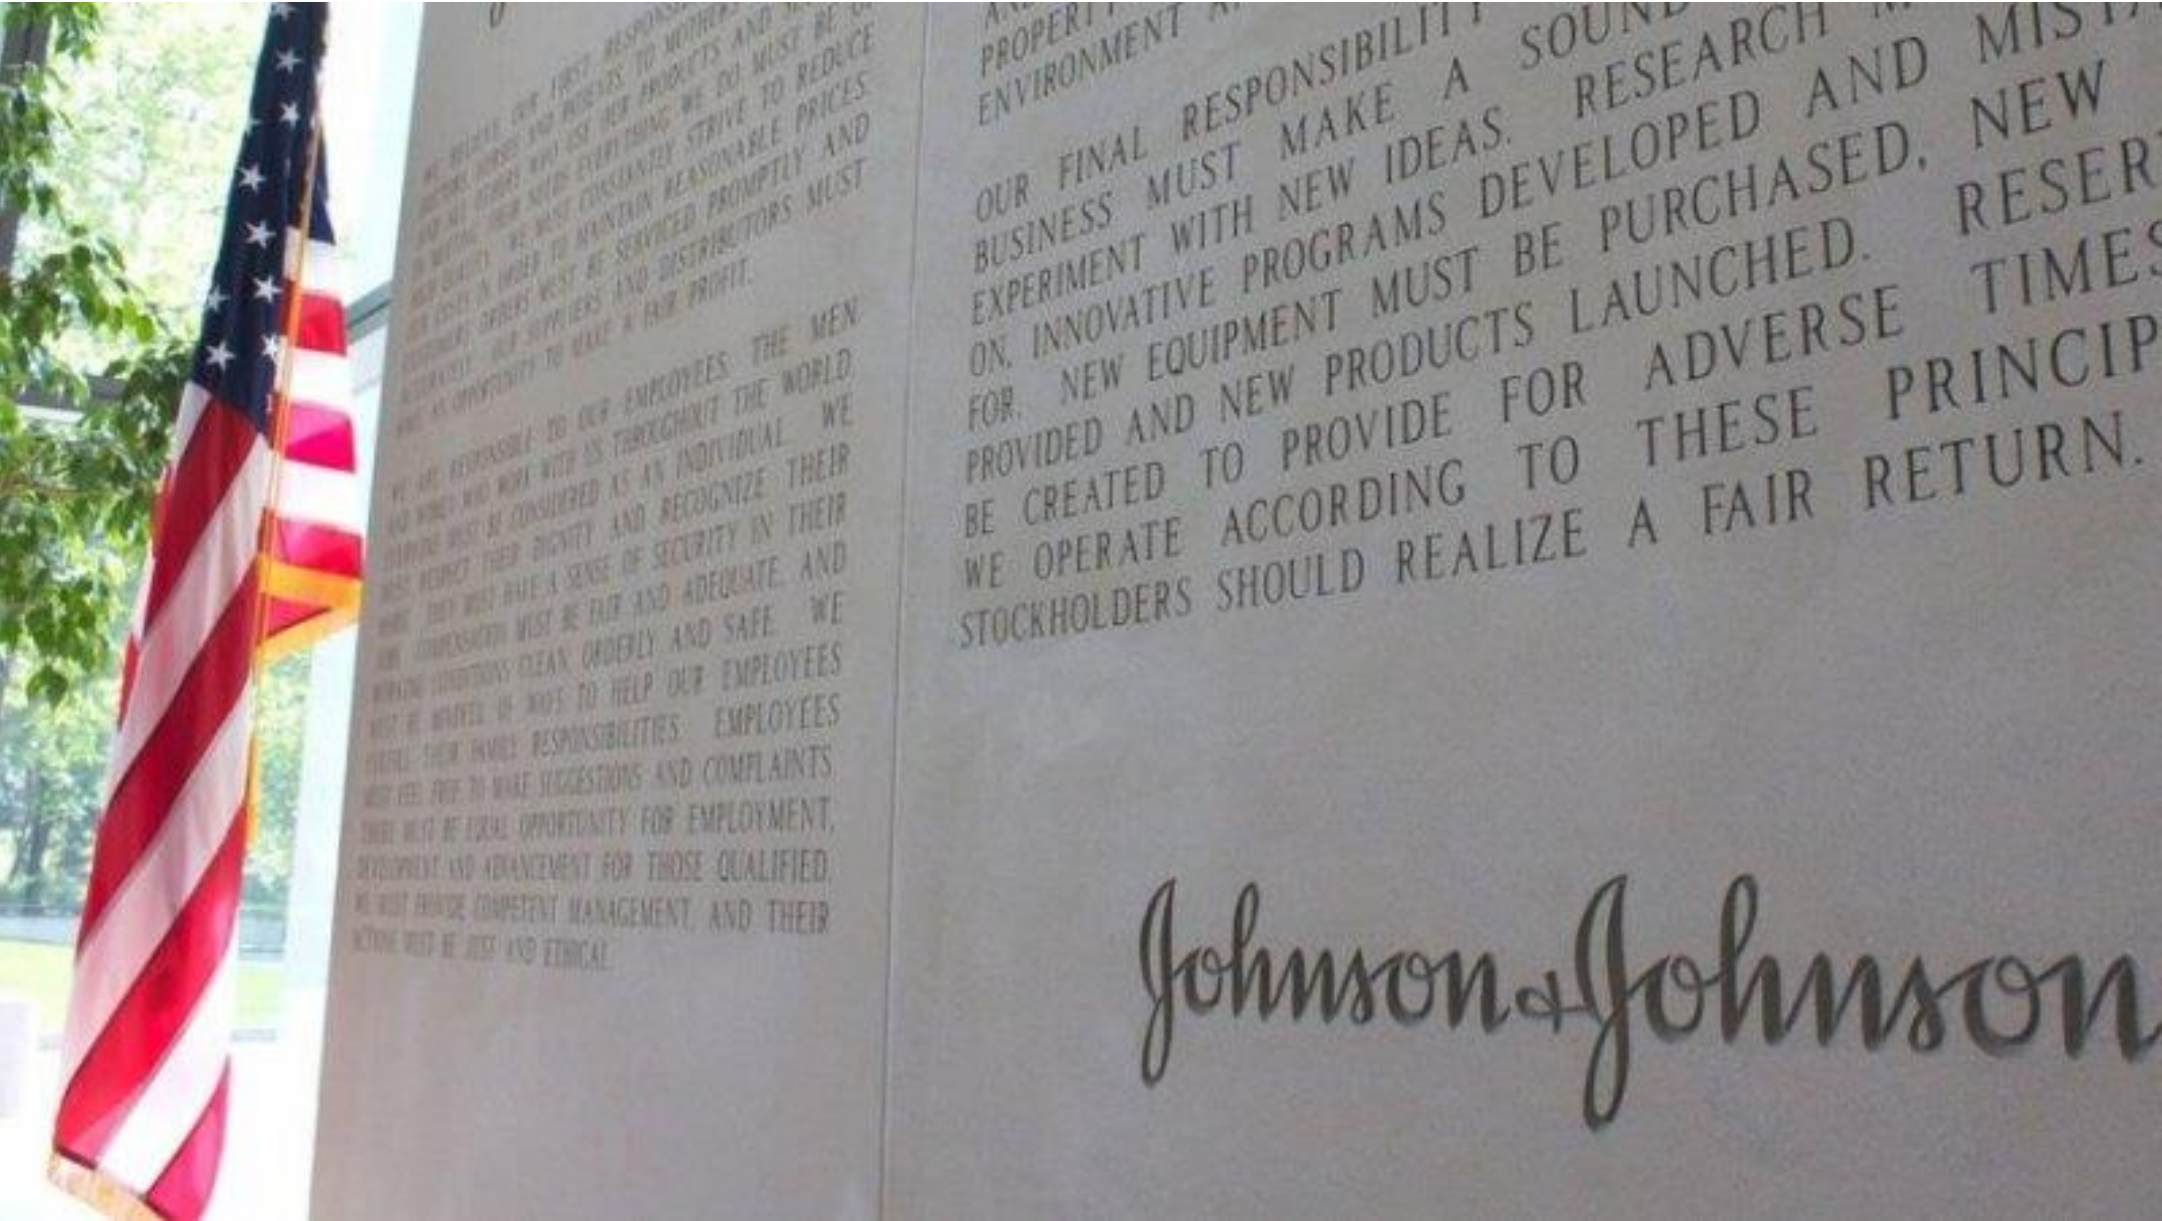 OUR FIRST RESPONS
TO MOTHERS
PRODUCTS AND
EVERYTHING WE DO MUST BE
CONSTANTLY STRIVE TO REDUCE
MAINTAIN REASONABLE PRICES.
MUST BE SERVICED PROMPTLY AND
OUR SUPPLIERS AND DISTRIBUTORS MUST
OPPORTUNITY TO MAKE A FAIR PROFIT.
WE ARE RESPONSIBLE TO OUR EMPLOYEES, THE MEN
AND WOMEN WHO WORK WITH US THROUGHOUT THE WORLD.
MUST BE CONSIDERED AS AN INDIVIDUAL. WE
MUST RESPECT THEIR DIGNITY AND RECOGNIZE THEIR
THEY MUST HAVE A SENSE OF SECURITY IN THEIR
COMPENSATION MUST BE FAIR AND ADEQUATE, AND
WORKING CONDITIONS CLEAN, ORDERLY AND SAFE. WE
MUST BE MINDFUL OF WAYS TO HELP OUR EMPLOYEES
FULFILL THEIR FAMILY RESPONSIBILITIES. EMPLOYEES
MUST FEEL FREE TO MAKE SUGGESTIONS AND COMPLAINTS.
THERE MUST BE EQUAL OPPORTUNITY FOR EMPLOYMENT,
DEVELOPMENT AND ADVANCEMENT FOR THOSE QUALIFIED.
WE MUST PROVIDE COMPETENT MANAGEMENT, AND THEIR
ACTIONS MUST BE JUST AND ETHICAL.
PROPERT
ENVIRONMENT
OUR FINAL RESPONSIBILITY
BUSINESS MUST MAKE A SOUND
EXPERIMENT WITH NEW IDEAS. RESEARCH
ON, INNOVATIVE PROGRAMS DEVELOPED AND MISTA
FOR. NEW EQUIPMENT MUST BE PURCHASED, NEW
PROVIDED AND NEW PRODUCTS LAUNCHED. RESER
BE CREATED TO PROVIDE FOR ADVERSE TIMES
WE OPERATE ACCORDING TO THESE PRINCIP
STOCKHOLDERS SHOULD REALIZE A FAIR RETURN.
Johnson & Johnson